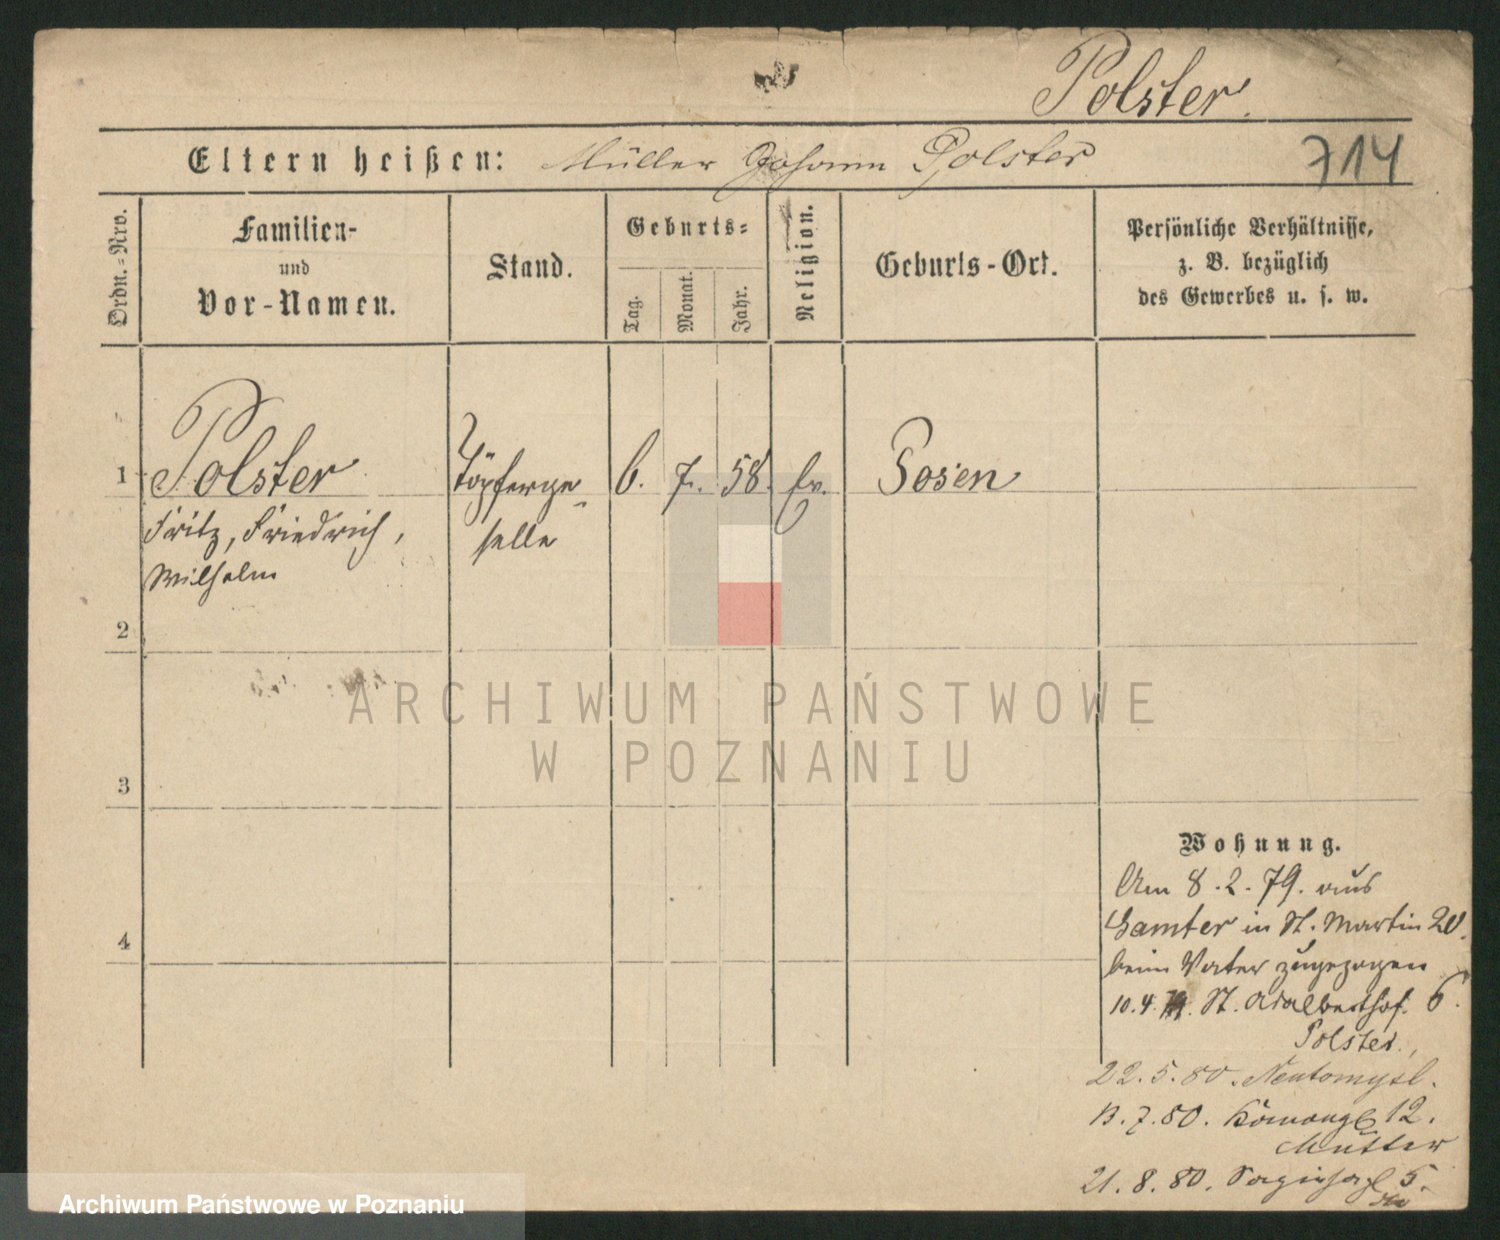 Polster.
Eltern heißen: Müller Johann Polster
714
Ordn.-Nro.
Familien-
und
Vor-Namen.
Stand.
Geburts-
Tag.
Monat.
Jahr.
Religion.
Geburts-Ort.
Persönliche Verhältnisse,
z. B. bezüglich
des Gewerbes u. s. w.
1 Polster Töpferge- 6. 7. 58. Ev. Posen
Fritz, Friedrich, selle
Wilhelm
2
3
4
ARCHIWUM PAŃSTWOWE
W POZNANIU
Wohnung.
Am 8.2.79. aus
Samter in St. Martin 20.
beim Vater zugezogen
10.4.79. St. Adalberthof. 6.
Polster.
22.5.80. Neutomysl.
13.7.80. 12.
Mutter
21.8.80. 5.
Archiwum Państwowe w Poznaniu